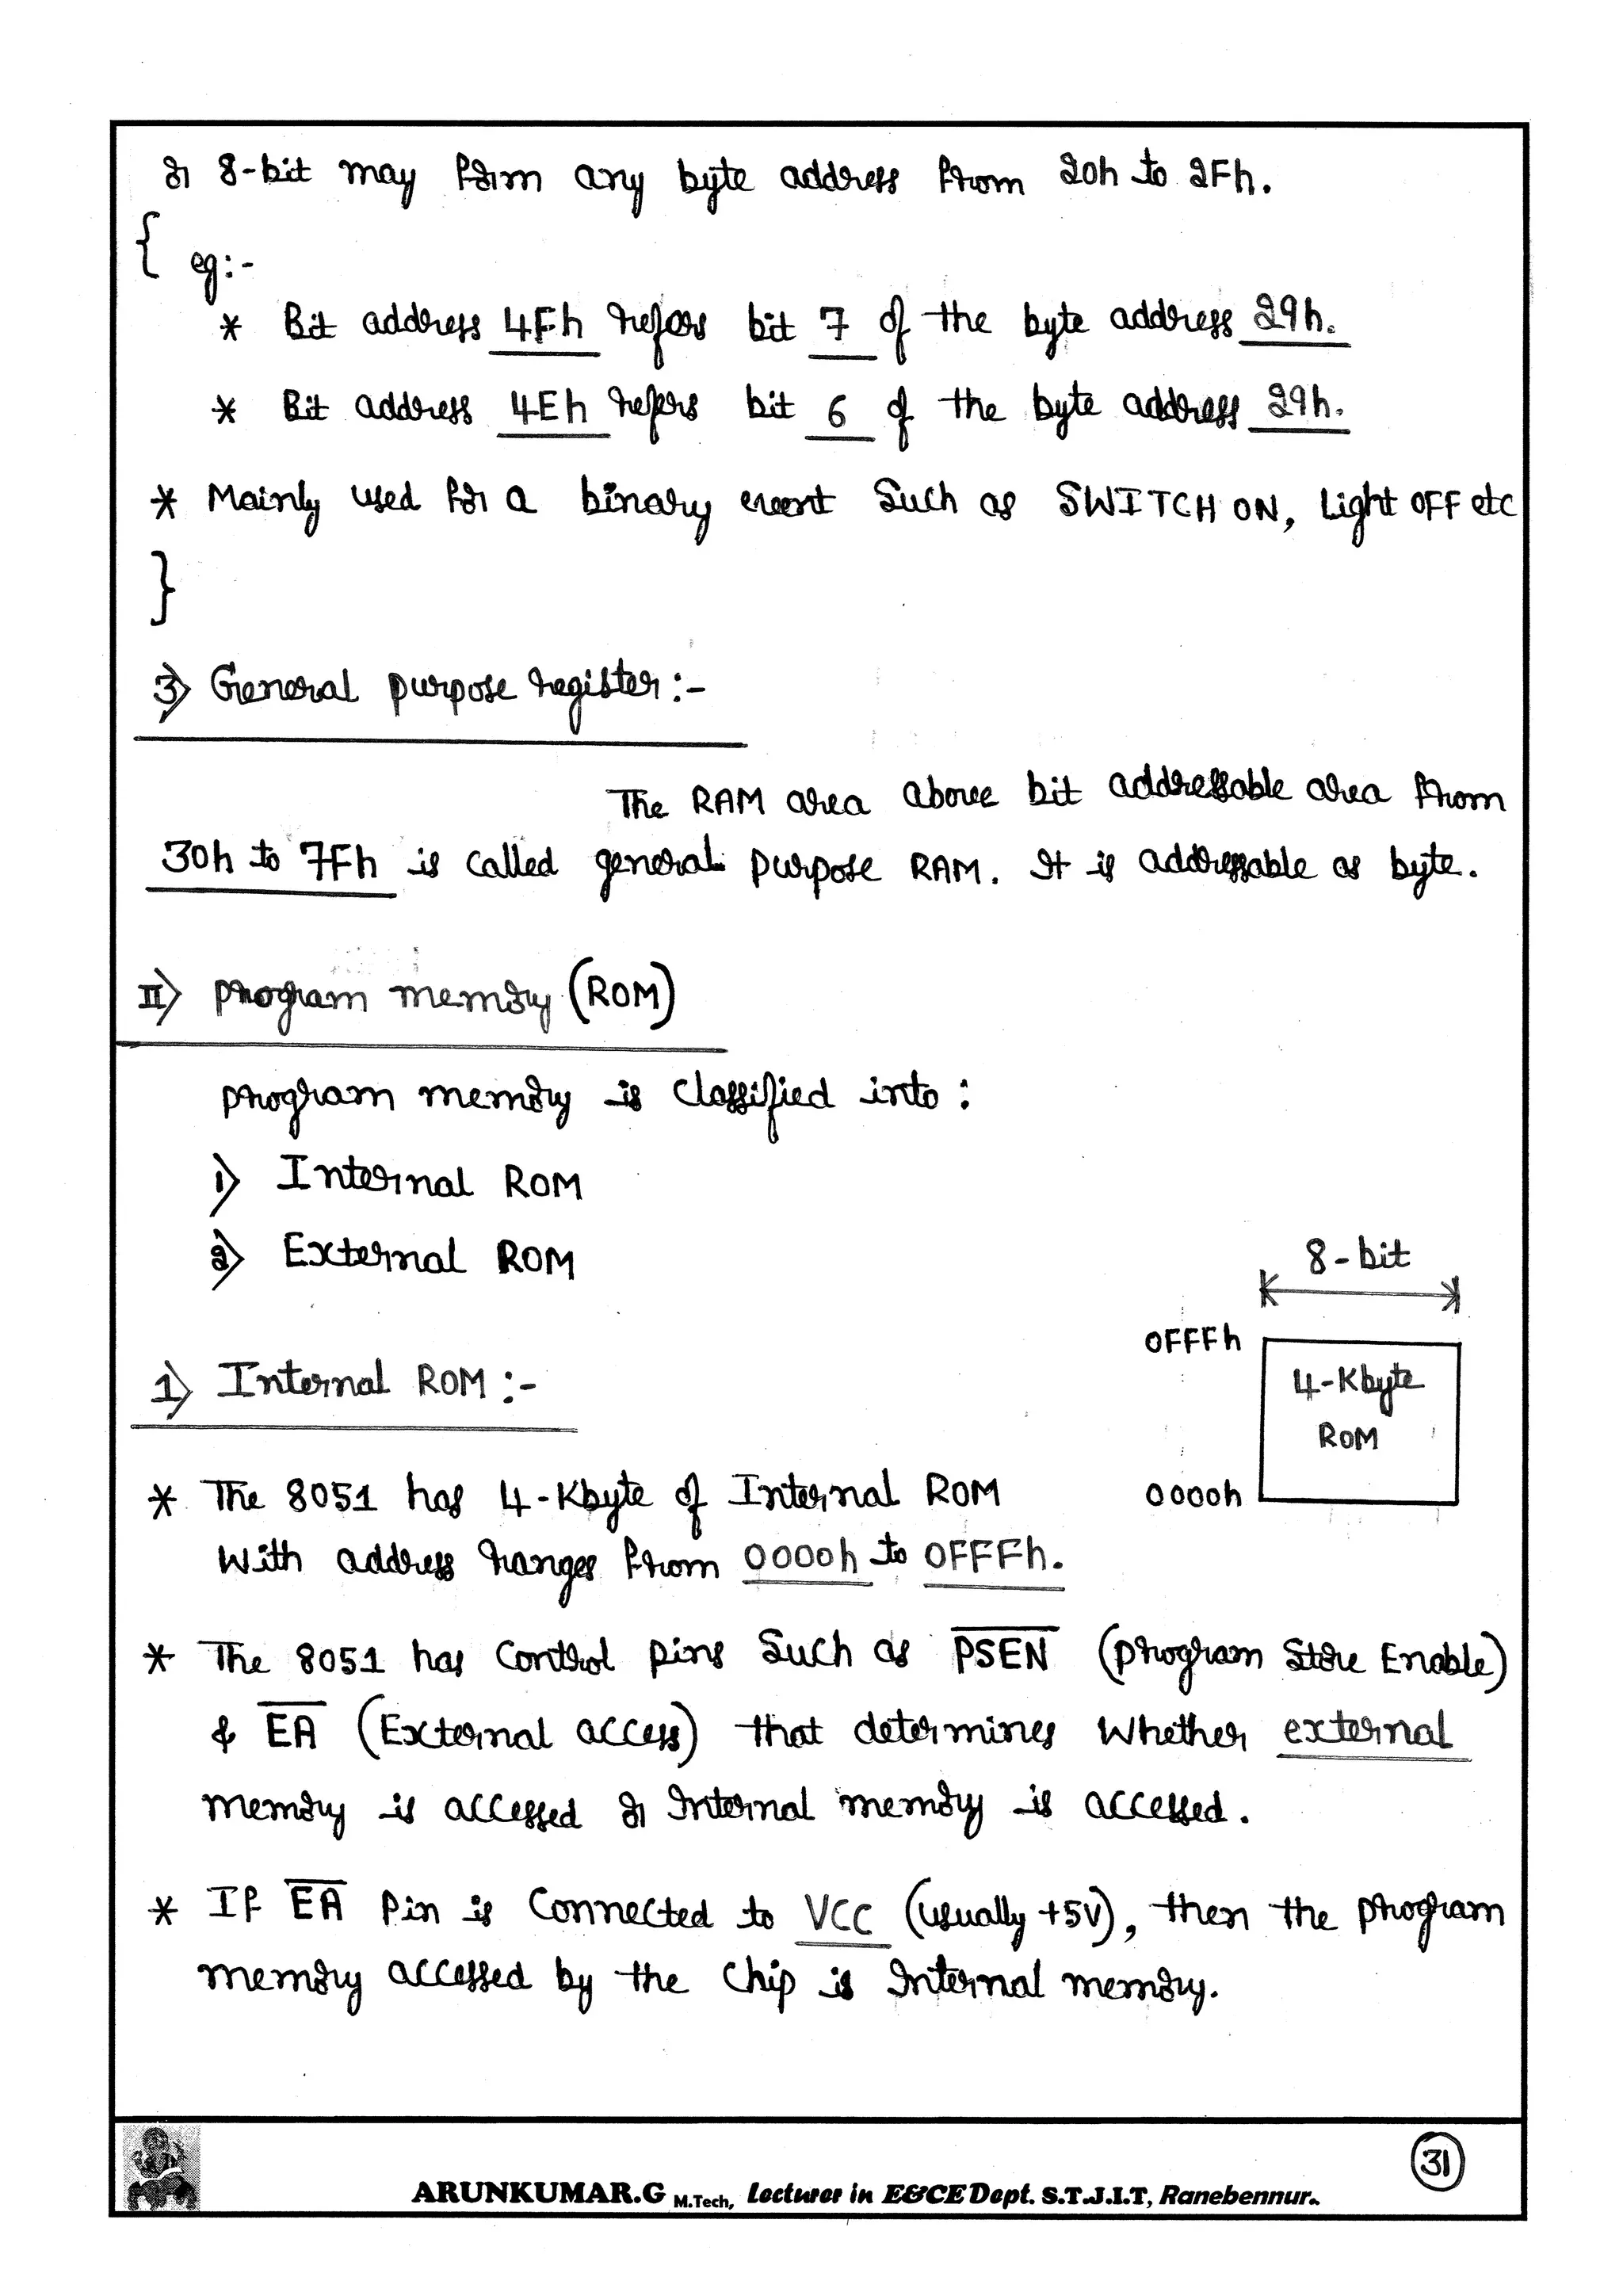 or 8-bit may form any byte address from 20h to 2Fh.
{ eg:-
* Bit address 4Fh refers bit 7 of the byte address 29h.
* Bit address 4Eh refers bit 6 of the byte address 29h.
* Mainly used for a binary event such as SWITCH ON, Light OFF etc
}
3) General purpose register:-
The RAM area above bit addressable area from
30h to 7Fh is called general purpose RAM. It is addressable as byte.
II) program memory (ROM)
program memory is classified into:
1) Internal ROM
2) External ROM
8-bit
0FFFh
4-Kbyte
ROM
0000h
1) Internal ROM:-
* The 8051 has 4-Kbyte of Internal ROM
with address ranges from 0000h to 0FFFh.
* The 8051 has control pins such as PSEN (program store Enable)
& EA (External access) that determines whether external
memory is accessed or Internal memory is accessed.
* If EA pin is connected to VCC (usually +5V), then the program
memory accessed by the chip is Internal memory.
31
ARUNKUMAR.G M.Tech, Lecturer in E&CE Dept. S.T.J.I.T, Ranebennur.